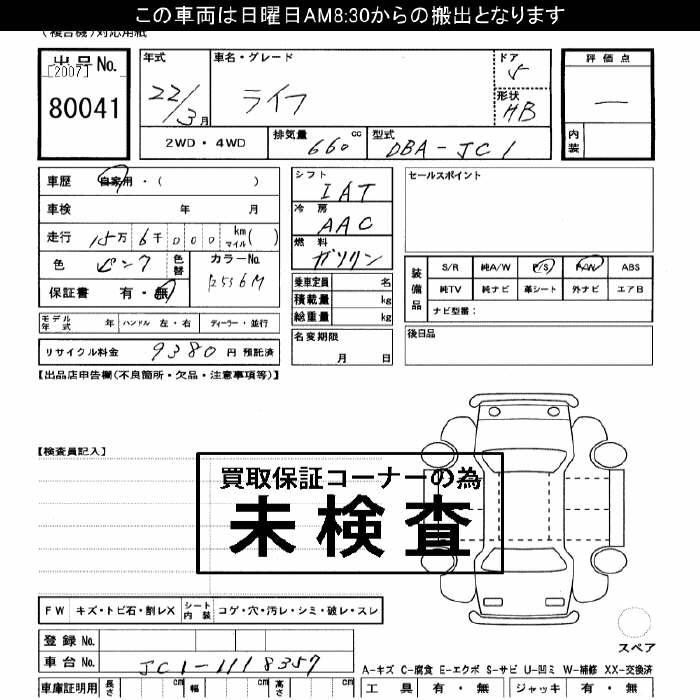 この車両は日曜日AM8:30からの搬出となります
(複合機)対応用紙
出品No.
[2007]
80041
年式
22/3月
車名・グレード
ライフ
ドア
5
形状
HB
評価点
—
内装
2WD・4WD
排気量 660 cc
型式 DBA-JC1
車歴 自家用・( )
車検 年 月
走行 15万 6千 0 0 0 km マイル( )
色 ピンク 色替 カラーNo.
保証書 有・無
モデル年式 年 ハンドル 左・右 ディーラー・並行
リサイクル料金 9380 円 預託済
シフト IAT
冷房 AAC
燃料 ガソリン
乗車定員 名
積載量 kg
総重量 kg
名変期限 月 日
セールスポイント
装備品 S/R 純A/W P/S P/W ABS
純TV 純ナビ 革シート 外ナビ エアB
ナビ型番:
後日品
【出品店申告欄(不良箇所・欠品・注意事項等)】
【検査員記入】
買取保証コーナーの為
未検査
FW キズ・トビ石・割レX シート内装 コゲ・穴・汚レ・シミ・破レ・スレ
登録No.
車台No. JC1-1118357
スペア
A-キズ C-腐食 E-エクボ S-サビ U-凹ミ W-補修 XX-交換済
車庫証明用 長さ cm 幅 cm 高さ cm
工具 有・無 ジャッキ 有・無